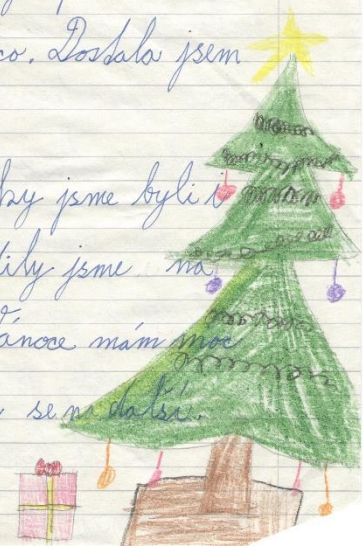 co. Dostala jsem
ky jsme byli i
ily jsme na
ánoce mám moc
se na další.